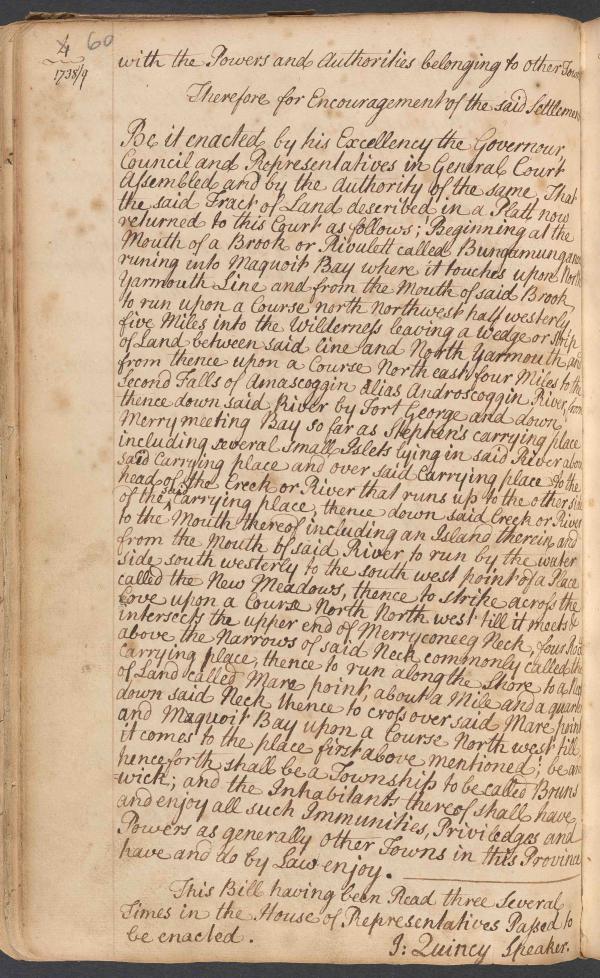 4 60
1738/9
with the Powers and Authorities belonging to other Town
Therefore for Encouragement of the said Settlement
Be it enacted by his Excellency the Governour
Council and Representatives in General Court
Assembled and by the authority of the same, That
the said Tract of Land described in a Platt now
returned to this Court as follows; Beginning at the
Mouth of a Brook or Rivulett called Bungamungan
runing into Maquoit Bay where it touches upon North
Yarmouth Line and from the Mouth of said Brook
to run upon a Course north Northwest half westerly
five Miles into the Wilderness leaving a wedge or Strip
of Land between said line and North Yarmouth, and
from thence upon a Course North east four Miles to the
Second Falls of Amascoggin alias Androscoggin River, from
thence down said River by Fort George and down
Merrymeeting Bay so far as Stephen's carrying place
including several small Islets lying in said River above
said Carrying place and over said Carrying place to the
head of the Creek or River that runs up to the other side
of the said Carrying place, thence down said Creek or River
to the Mouth thereof including an Island therein, and
from the Mouth of said River to run by the water
side south westerly to the south west point of a Place
called the New Meadows, thence to strike across the
Cove upon a Course North North west till it meets &
intersects the upper end of Merryconeeg Neck, four Rods
above the Narrows of said Neck commonly called the
Carrying place, thence to run along the Shore to a Neck
of Land called Mare point, about a Mile and a quarter
down said Neck thence to cross over said Mare point
and Maquoit Bay upon a Course North west till
it comes to the place first above mentioned; be and
henceforth shall be a Township to be called Bruns
=wick; and the Inhabitants thereof shall have
and enjoy all such Immunities, Priviledges and
Powers as generally other Towns in this Province
have and do by Law enjoy.
This Bill having been Read three Several
Times in the House of Representatives Passed to
be enacted.
J: Quincy Speaker.